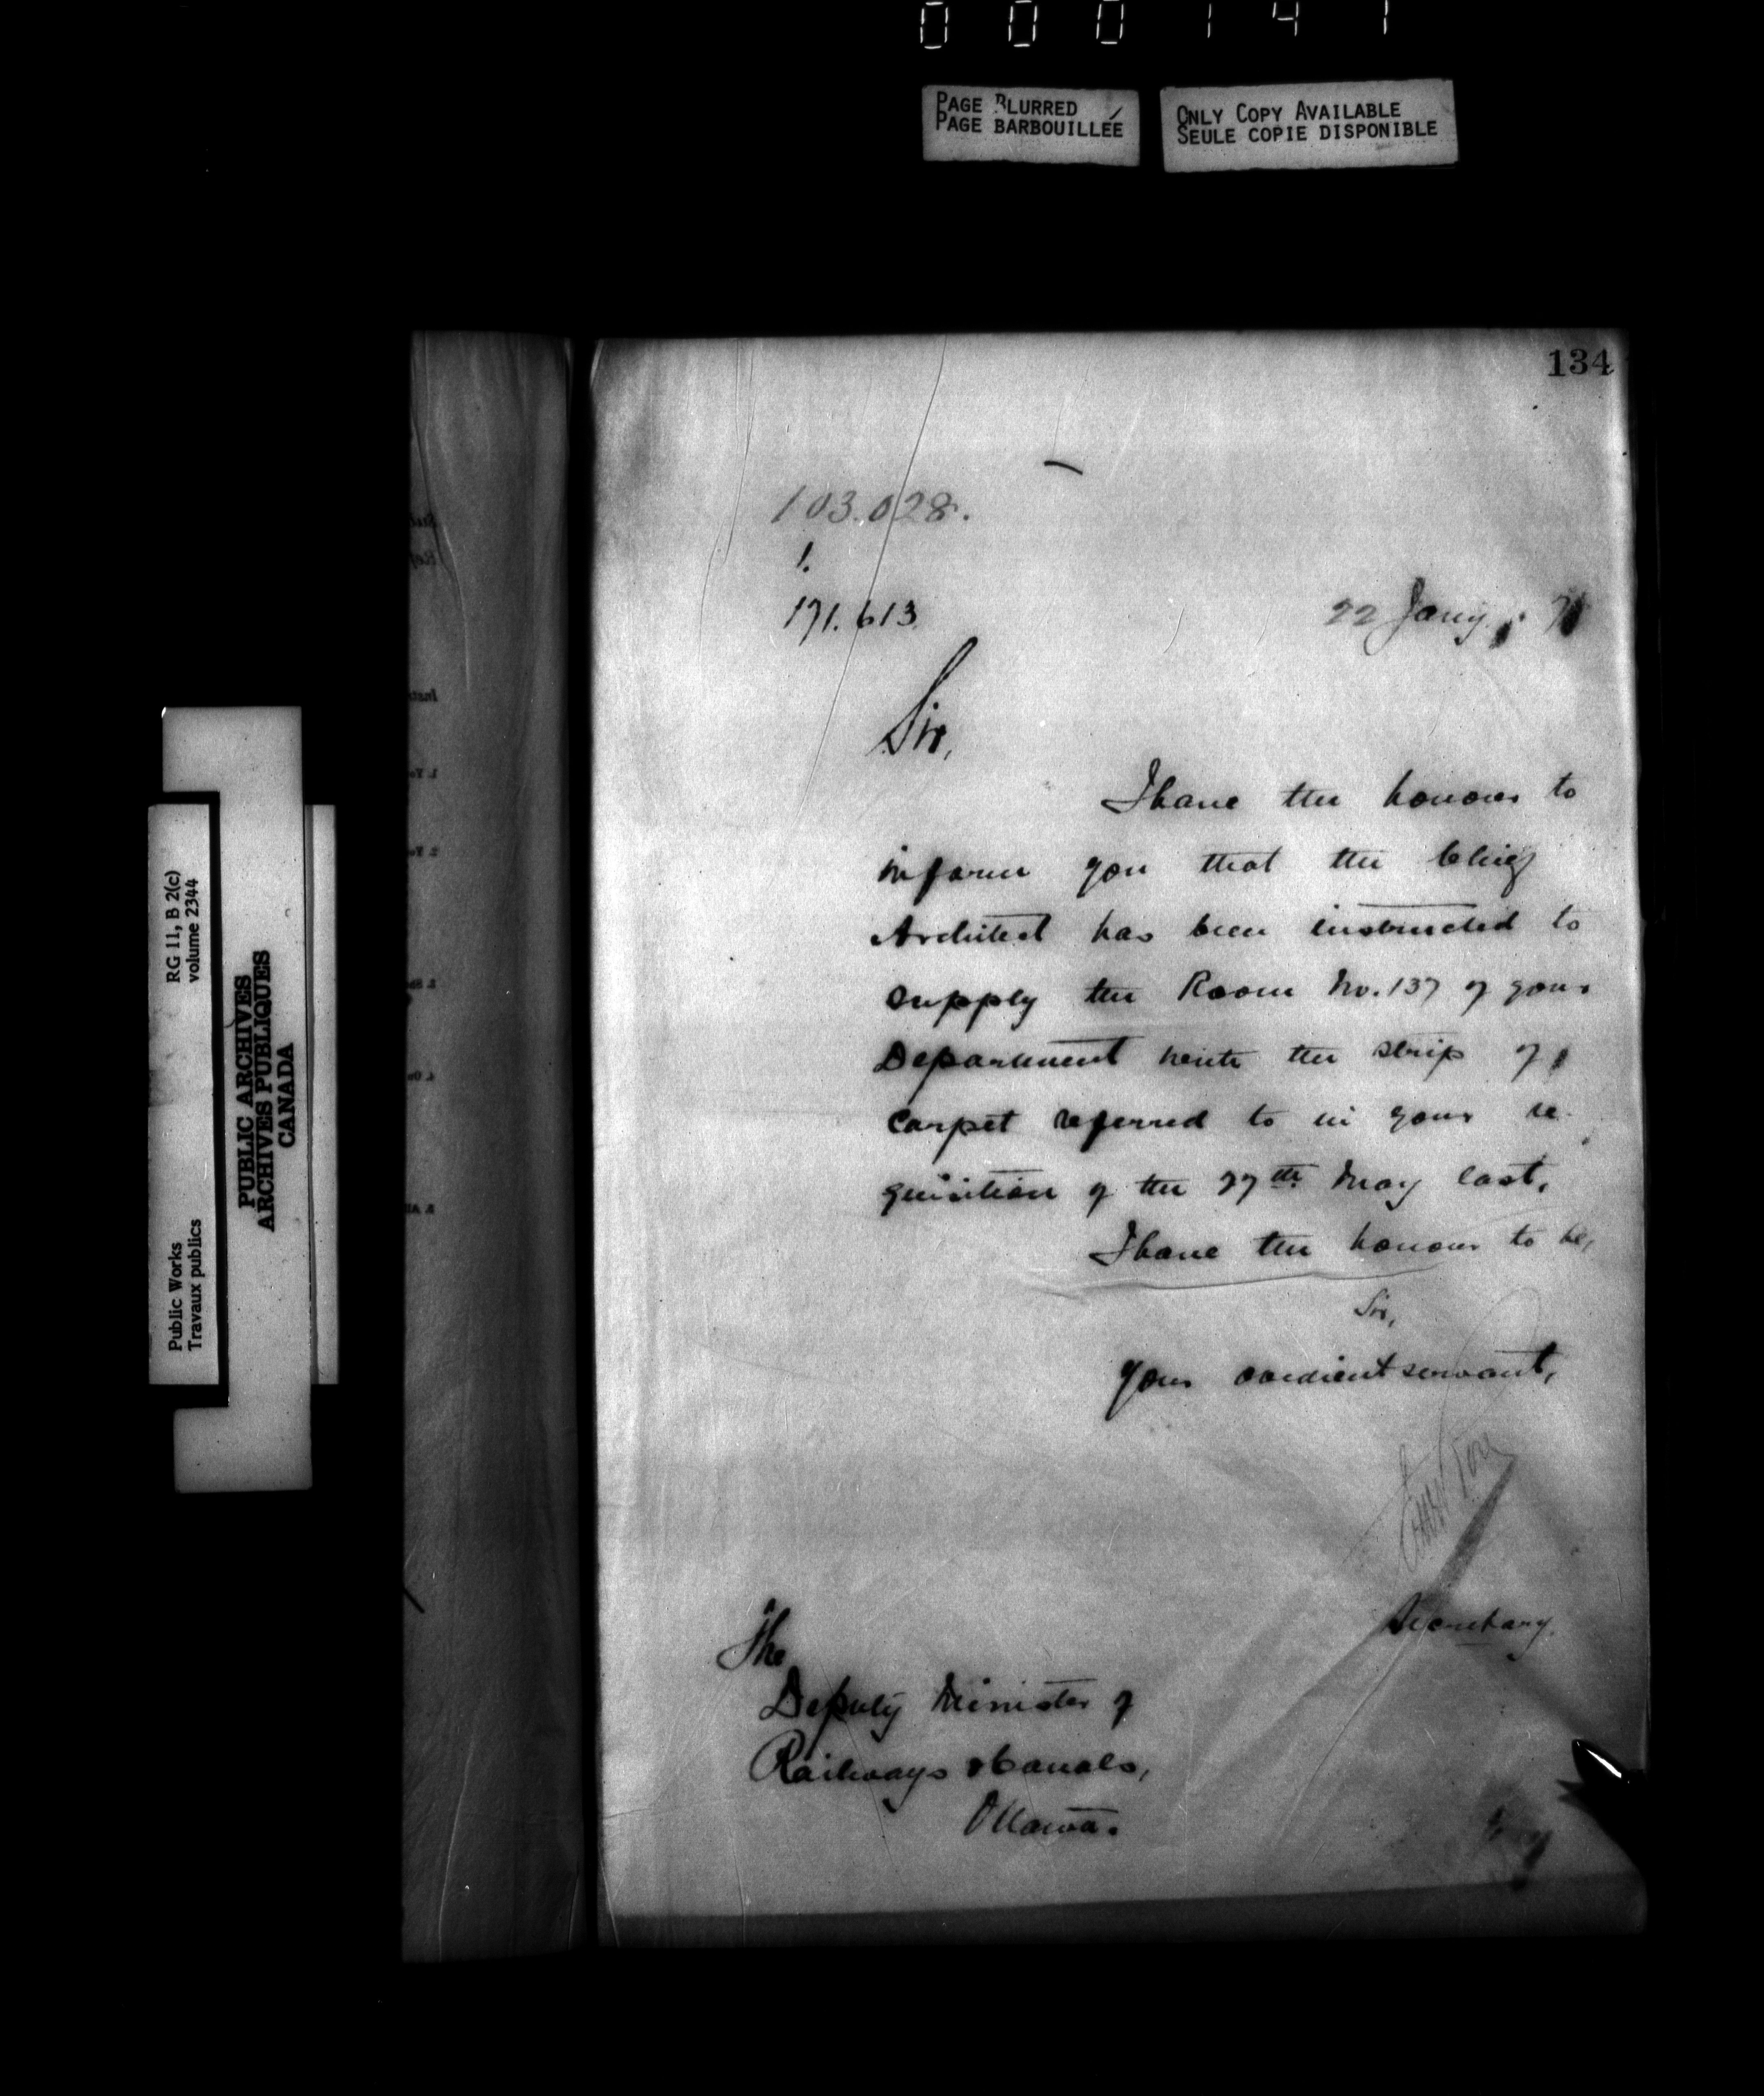 000141
PAGE BLURRED
PAGE BARBOUILLÉE
ONLY COPY AVAILABLE
SEULE COPIE DISPONIBLE
134
103.028.
1.
171.613
22 Jany.
Sir,
I have the honour to
inform you that the Chief
Architect has been instructed to
supply the Room No. 137 of your
Department with the strip of
carpet referred to in your re
quisition of the 27th May last.
I have the honour to be,
Sir,
Your obedient servant,
Secretary.
The
Deputy Minister of
Railways & Canals,
Ottawa.
RG 11, B 2(c)
volume 2344
Public Works
Travaux publics
PUBLIC ARCHIVES
ARCHIVES PUBLIQUES
CANADA